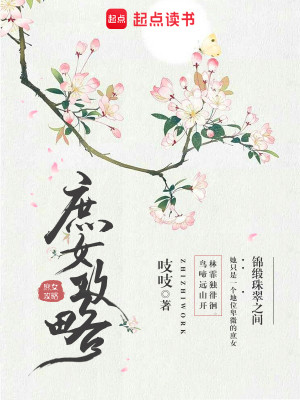 起点
起点读书
庶女攻略
庶女
攻略
吱吱◎著
ZHIZHIWORK
林霏独徘徊
鸟啼远山开
她只是一个地位卑微的庶女
锦缎珠翠之间